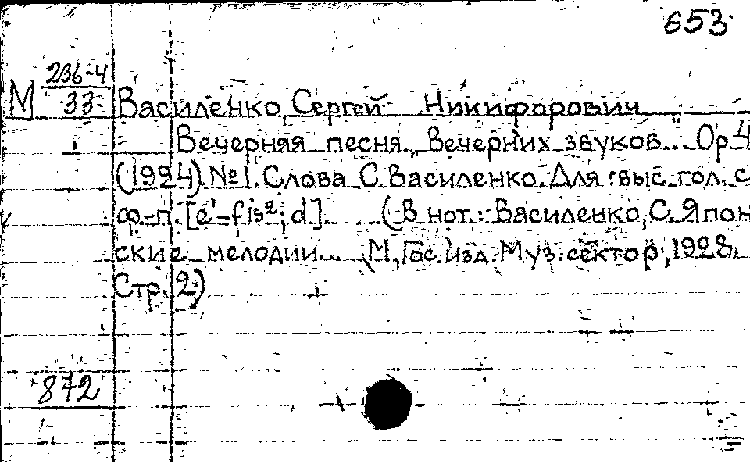 653
М 236-4
33
Василенко, Сергей Никифорович
Вечерняя песня. „Вечерних звуков... Op. 4
(1924) № 1. Слова С. Василенко. Для выс. гол. с
ф-п. [e¹-fis²; d]. (В нот.: Василенко, С. Япон
ские мелодии... М., Гос. изд. Муз. сектор, 1928.
Стр. 2)
872